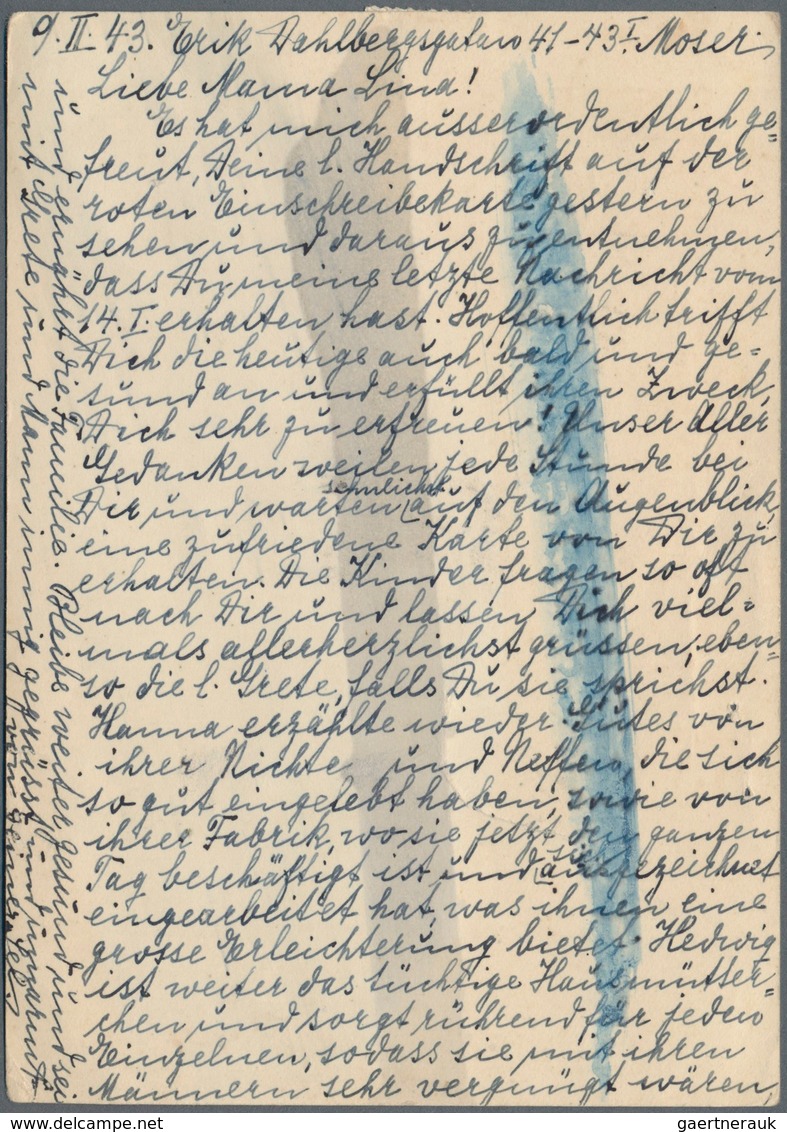 9. II. 43. Erik Dahlbergsgatan 41-43 I. Moser.
Liebe Mama Lina!
Es hat mich ausserordentlich ge=
freut, Deine l. Handschrift auf der
roten Einschreibekarte gestern zu
sehen und daraus zu entnehmen,
dass Du meine letzte Nachricht vom
14. I. erhalten hast. Hoffentlich trifft
Dich die heutige auch bald und ge=
sund an und erfüllt ihren Zweck,
Dich sehr zu erfreuen! Unser Aller
Gedanken weilen jede Stunde bei
Dir und warten sehnlichst auf den Augenblick,
eine zufriedene Karte von Dir zu
erhalten. Die Kinder fragen so oft
nach Dir und lassen Dich viel=
mals allerherzlichst grüssen, eben=
so die l. Grete, falls Du sie sprichst.
Hanna erzählte wieder Gutes von
ihrer Nichte und Neffen, die sich
so gut eingelebt haben, sowie von
ihrer Fabrik, wo sie jetzt den ganzen
Tag beschäftigt ist und sich ausgezeichnet
eingearbeitet hat, was ihnen eine
grosse Erleichterung bietet. Hedwig
ist weiter das tüchtige Hausmütter=
chen und sorgt rührend für jeden
Einzelnen, sodass sie mit ihren
Männern sehr vergnügt wären,
und ernährt die Familie. Bleibe weiter gesund und sei
mit Grete und Mann innig gegrüsst und umarmt
von Deiner
gaertnerauk